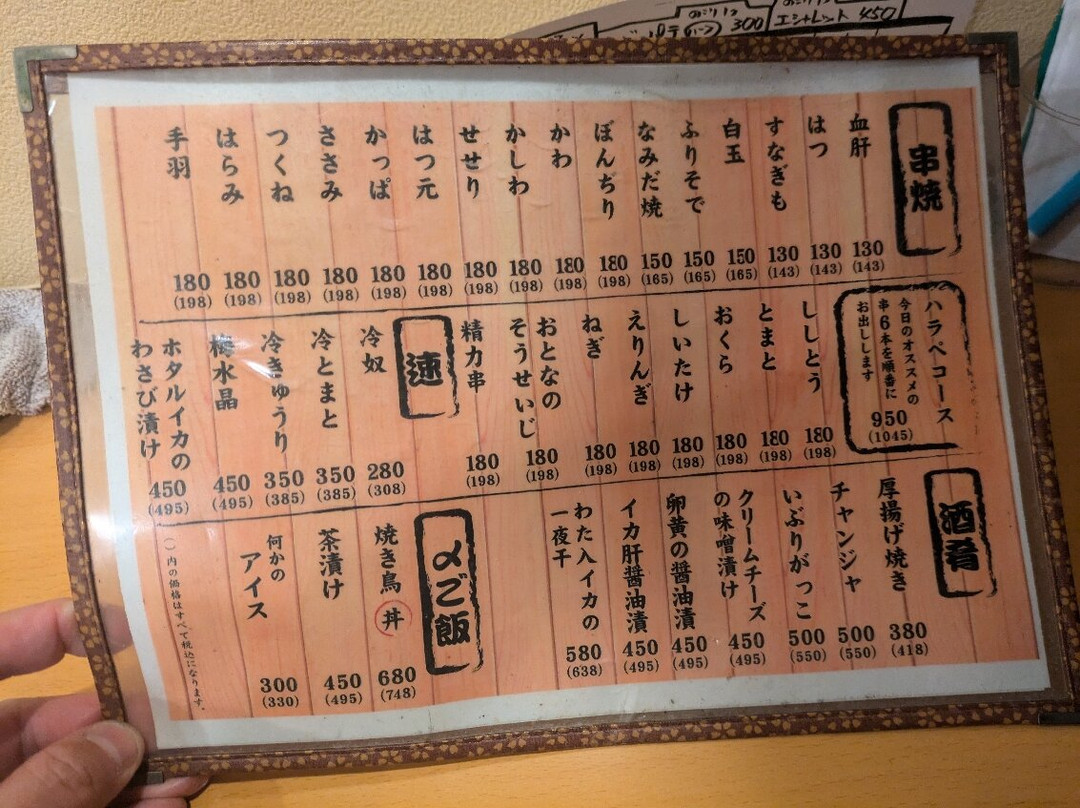 300
エシャレット 450
串焼
血肝 130 (143)
はつ 130 (143)
すなぎも 130 (143)
白玉 150 (165)
ふりそで 150 (165)
なみだ焼 150 (165)
ぼんぢり 180 (198)
かわ 180 (198)
かしわ 180 (198)
せせり 180 (198)
はつ元 180 (198)
かっぱ 180 (198)
ささみ 180 (198)
つくね 180 (198)
はらみ 180 (198)
手羽 180 (198)
ハラペコース
今日のオススメの
串6本を順番に
お出しします
950 (1045)
ししとう 180 (198)
とまと 180 (198)
おくら 180 (198)
しいたけ 180 (198)
えりんぎ 180 (198)
ねぎ 180 (198)
おとなの
そうせいじ 180 (198)
精力串 180 (198)
速
冷奴 280 (308)
冷とまと 350 (385)
冷きゅうり 350 (385)
梅水晶 450 (495)
ホタルイカの
わさび漬け 450 (495)
酒肴
厚揚げ焼き 380 (418)
チャンジャ 500 (550)
いぶりがっこ 500 (550)
クリームチーズ
の味噌漬け 450 (495)
卵黄の醤油漬 450 (495)
イカ肝醤油漬 450 (495)
わた入イカの
一夜干 580 (638)
〆ご飯
焼き鳥丼 680 (748)
茶漬け 450 (495)
何かの
アイス 300 (330)
( )内の価格はすべて税込になります。